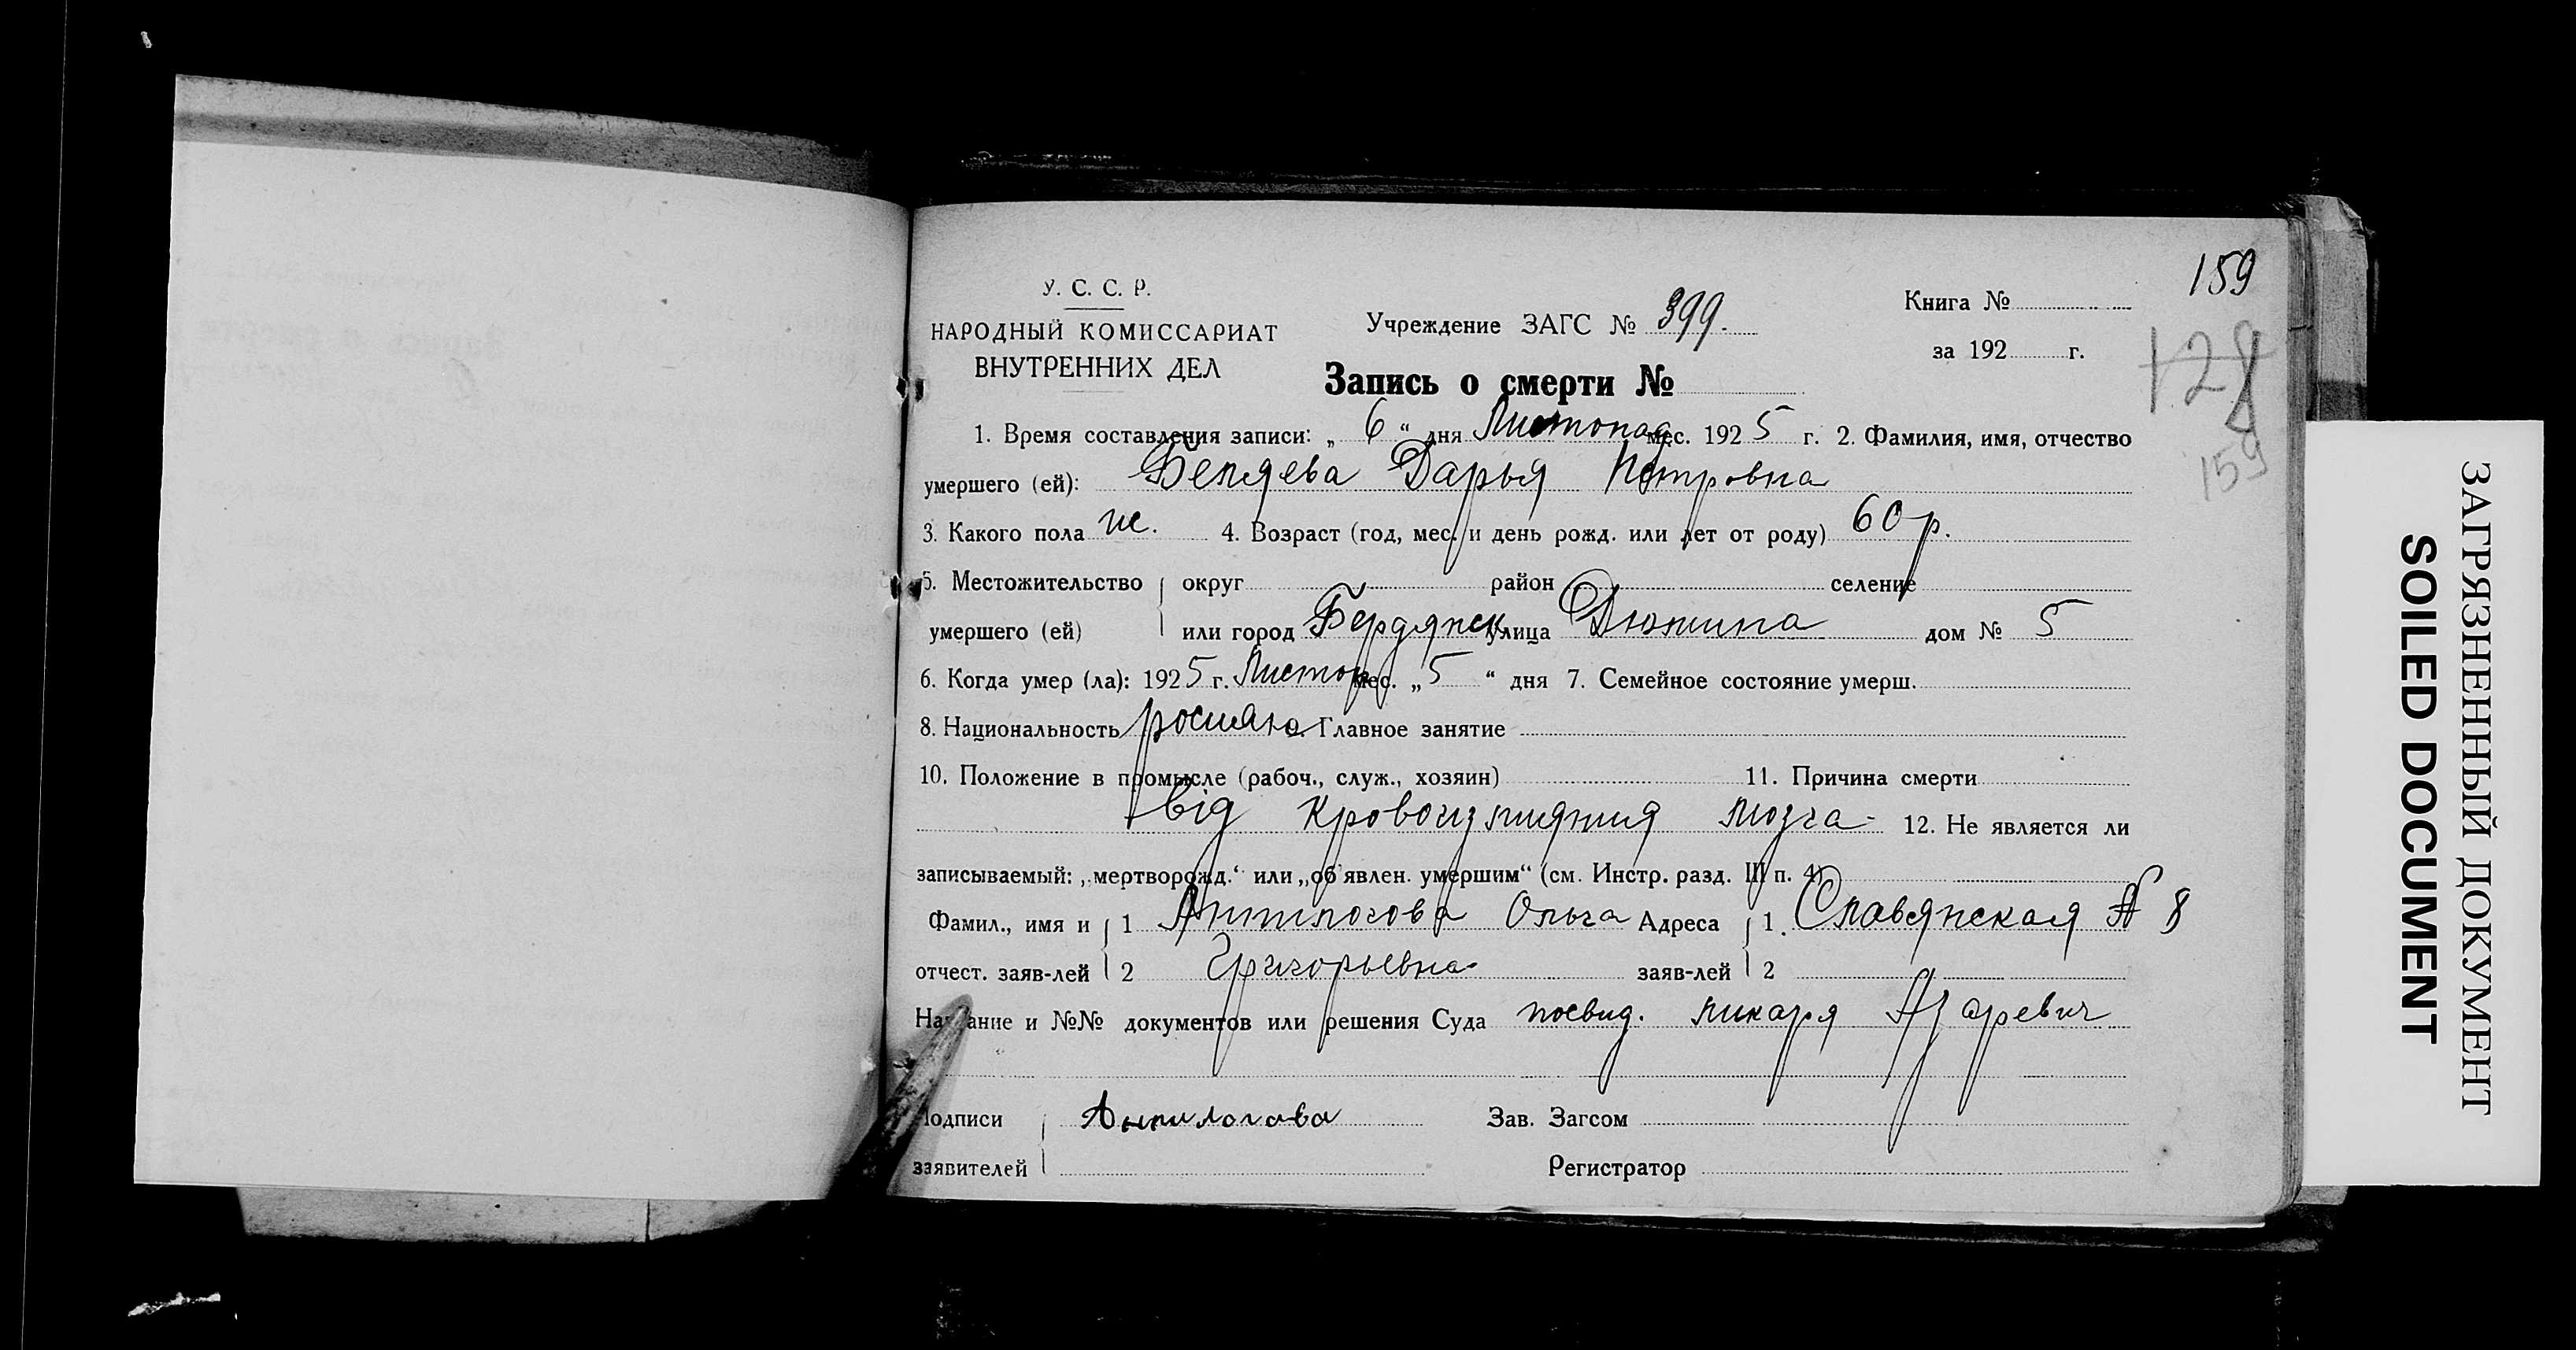 159
У. С. С. Р.
НАРОДНЫЙ КОМИССАРИАТ
ВНУТРЕННИХ ДЕЛ
Учреждение ЗАГС № 399.
Книга №
за 192 г.
128
159
Запись о смерти №
1. Время составления записи: „ 6 “ дня Листопад мес. 1925 г. 2. Фамилия, имя, отчество
умершего (ей): Беляева Дарья Петровна
3. Какого пола ж. 4. Возраст (год, мес. и день рожд. или лет от роду) 60 р.
5. Местожительство округ район селение
умершего (ей) или город Бердянск улица Дюмина дом № 5
6. Когда умер (ла): 1925 г. Листоп мес. „ 5 “ дня 7. Семейное состояние умерш.
8. Национальность росиянка Главное занятие
10. Положение в промысле (рабоч., служ., хозяин) 11. Причина смерти
від кровоизлияния мозга 12. Не является ли
записываемый: „мертворожд.“ или „об'явлен. умершим“ (см. Инстр. разд. III п. 4)
Фамил., имя и 1 Анпилогова Ольга Адреса 1. Славянская № 8
отчест. заяв-лей 2 Григорьевна заяв-лей 2
Название и №№ документов или решения Суда посвид. ликаря Азаревич
Подписи Анпилогова Зав. Загсом
заявителей Регистратор
ЗАГРЯЗНЕННЫЙ ДОКУМЕНТ
SOILED DOCUMENT